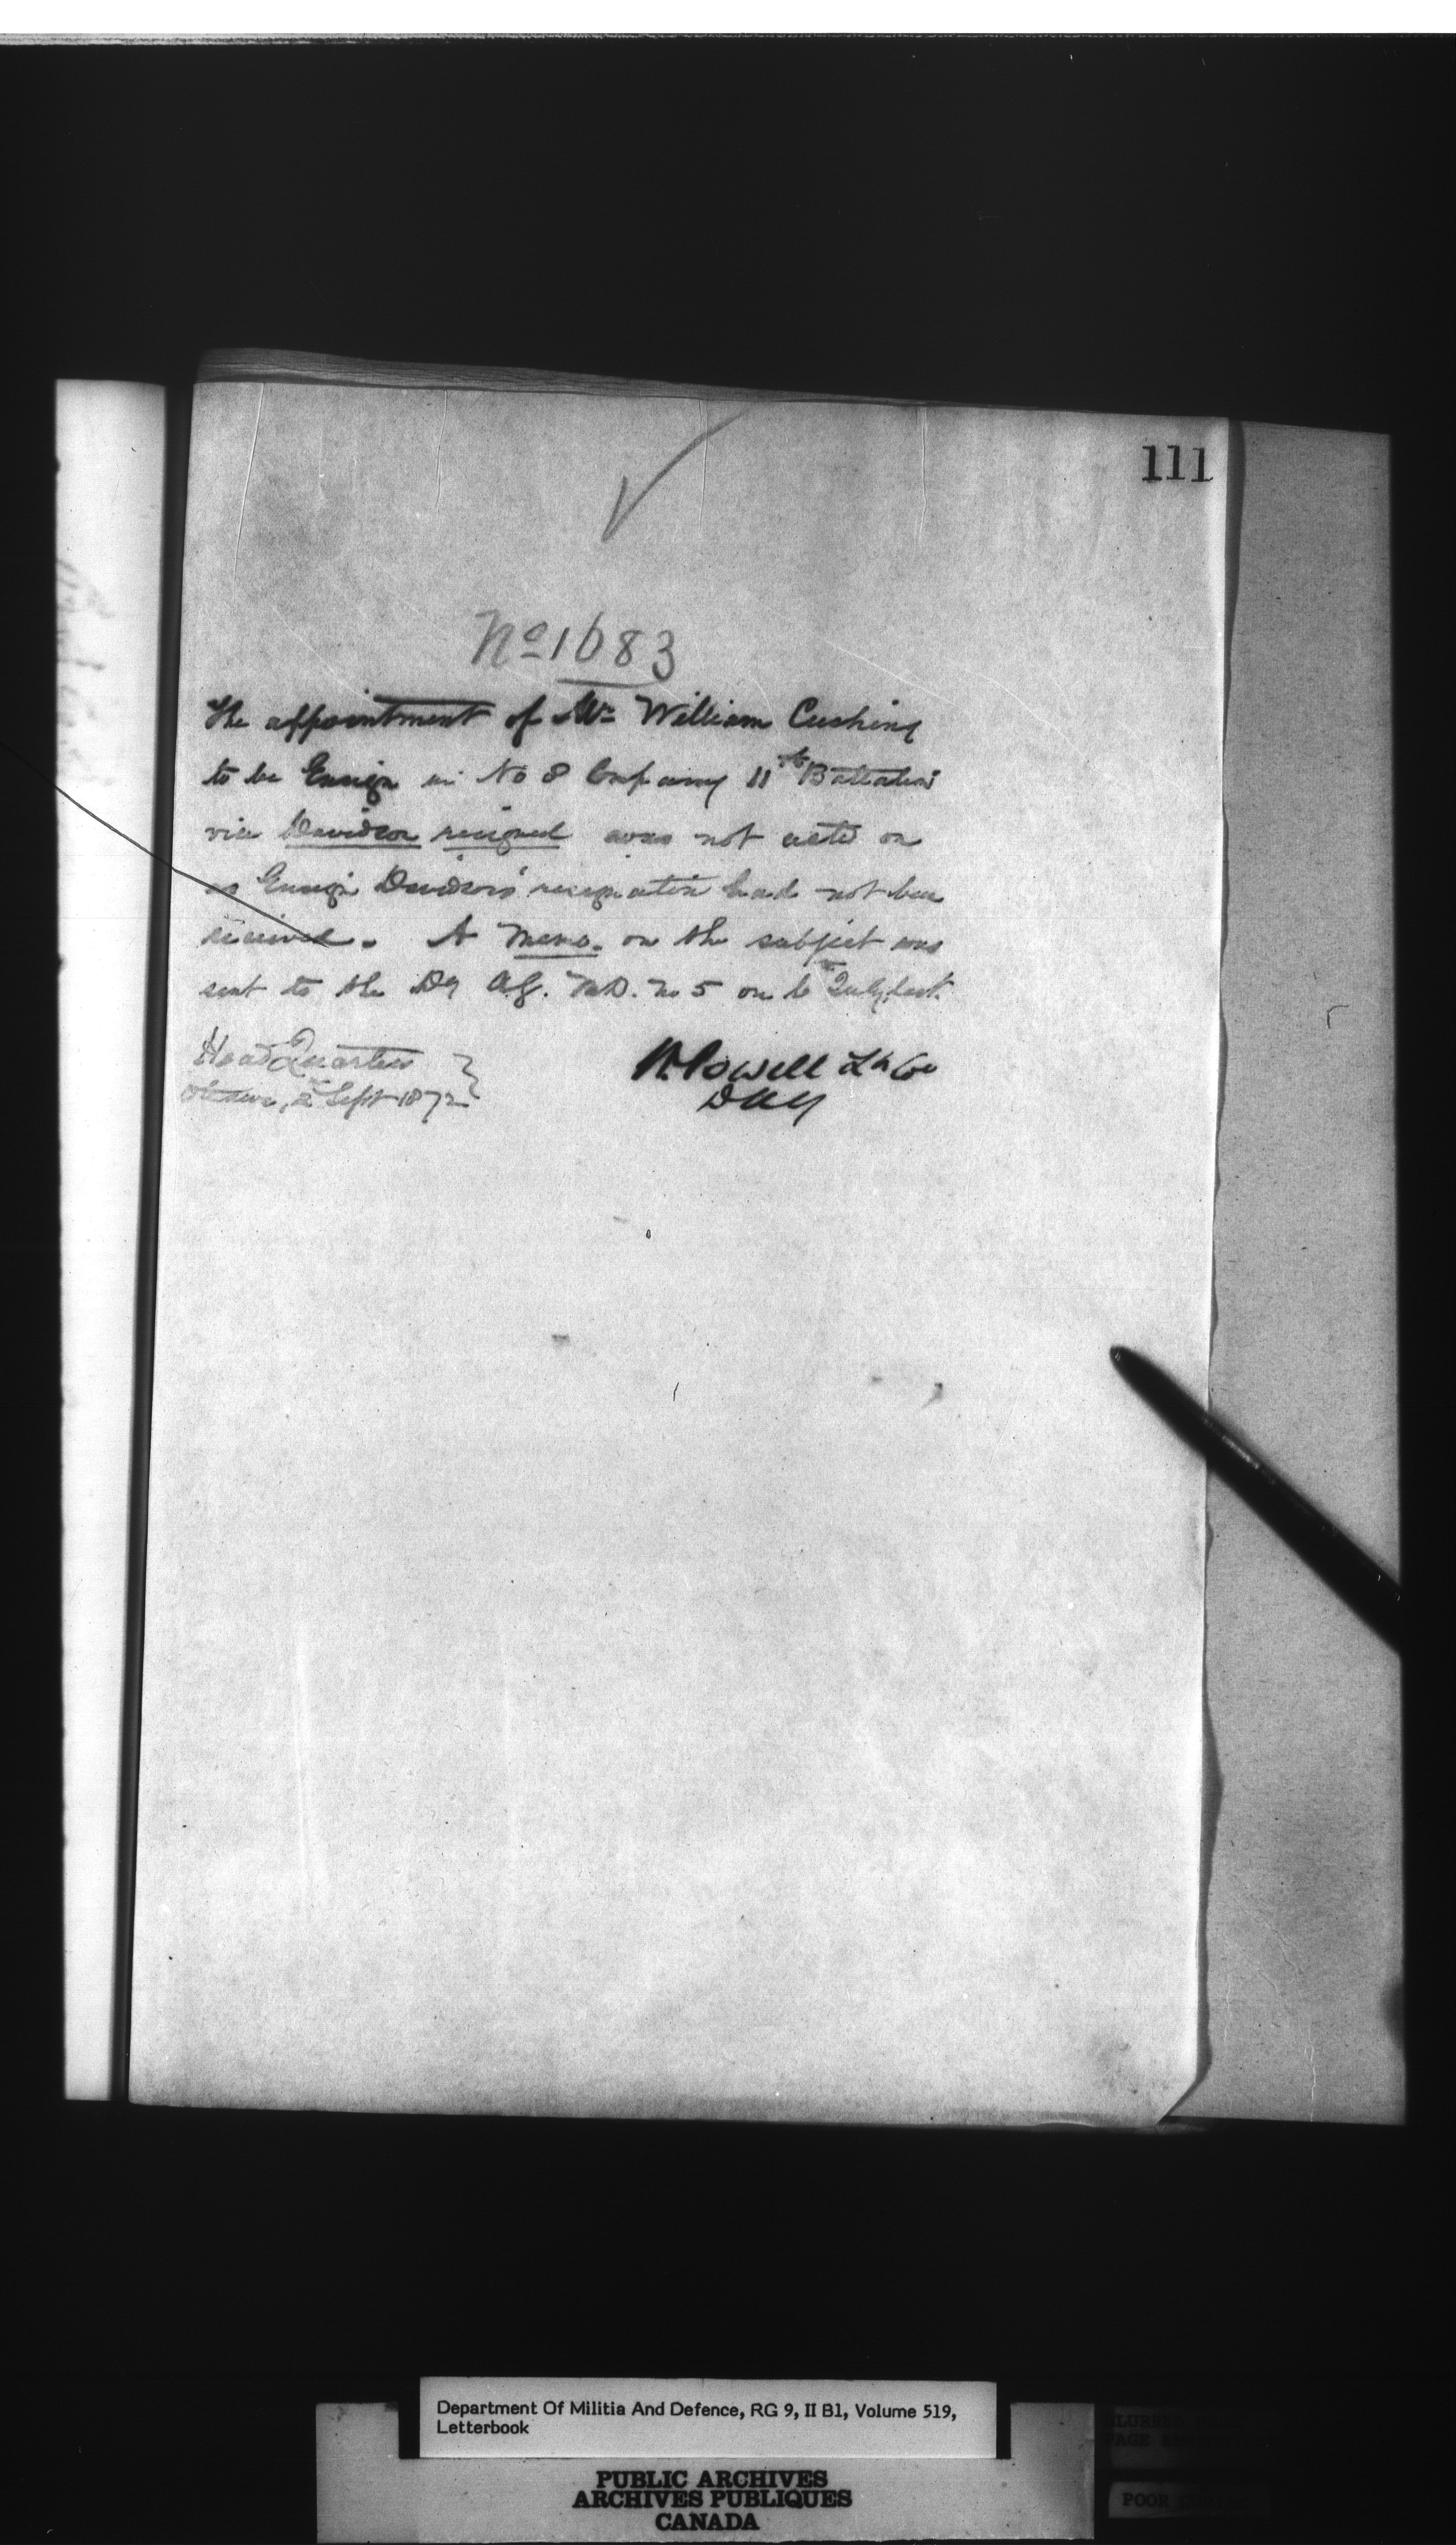 111
No 1683
The appointment of Mr William Cushing
to be Ensign in No 8 Company 11th Battalion
vice Davidson resigned was not acted on
as Ensign Davidson's resignation had not been
received. A Memo. on the subject was
sent to the Dy A.G. M.D. No 5 on 6th July last.
Head Quarters
Ottawa, 2nd Sept 1872
W. Powell Lt Col
DAG
Department Of Militia And Defence, RG 9, II B1, Volume 519,
Letterbook
PUBLIC ARCHIVES
ARCHIVES PUBLIQUES
CANADA
POOR